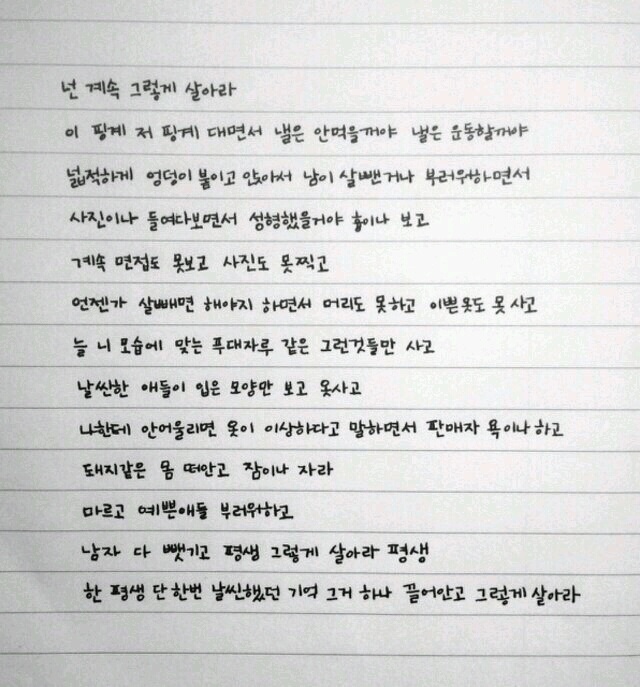 넌 계속 그렇게 살아라
이 핑계 저 핑계 대면서 낼은 안먹을꺼야 낼은 운동할꺼야
넓적하게 엉덩이 붙이고 앉아서 남이 살뺀거나 부러워하면서
사진이나 들여다보면서 성형했을거야 흉이나 보고
계속 면접도 못보고 사진도 못찍고
언젠가 살빼면 해야지 하면서 머리도 못하고 이쁜옷도 못 사고
늘 니 모습에 맞는 푸대자루 같은 그런것들만 사고
날씬한 애들이 입은 모양만 보고 옷사고
나한테 안어울리면 옷이 이상하다고 말하면서 판매자 욕이나하고
돼지같은 몸 떠안고 잠이나 자라
마르고 예쁜애들 부러워하고
남자 다 뺏기고 평생 그렇게 살아라 평생
한 평생 단 한번 날씬했던 기억 그거 하나 끌어안고 그렇게 살아라